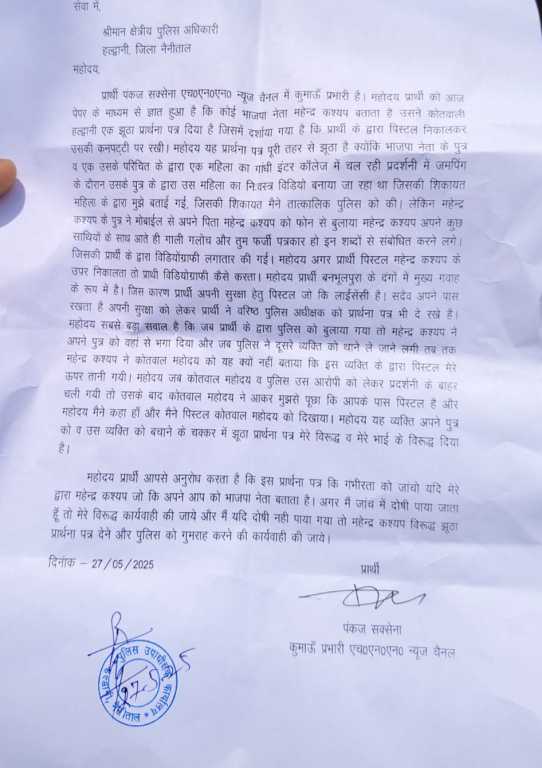 सेवा में,
श्रीमान क्षेत्रीय पुलिस अधिकारी
हल्द्वानी, जिला नैनीताल
महोदय,
प्रार्थी पंकज सक्सेना एच0एन0एन0 न्यूज चैनल में कुमाऊँ प्रभारी है। महोदय प्रार्थी को आज
पेपर के माध्यम से ज्ञात हुआ है कि कोई भाजपा नेता महेन्द्र कश्यप बताता है उसने कोतवाली
हल्द्वानी एक झूठा प्रार्थना पत्र दिया है जिसमें दर्शाया गया है कि प्रार्थी के द्वारा पिस्टल निकालकर
उसकी कनपट्टी पर रखी। महोदय यह प्रार्थना पत्र पूरी तहर से झूठा है क्योंकि भाजपा नेता के पुत्र
व एक उसके परिचित के द्वारा एक महिला का गांधी इंटर कॉलेज में चल रही प्रदर्शनी में जमपिंग
के दौरान उसके पुत्र के द्वारा उस महिला का निःवस्त्र विडियो बनाया जा रहा था जिसकी शिकायत
महिला के द्वारा मुझे बताई गई, जिसकी शिकायत मैने तात्कालिक पुलिस को की। लेकिन महेन्द्र
कश्यप के पुत्र ने मोबाईल से अपने पिता महेन्द्र कश्यप को फोन से बुलाया महेन्द्र कश्यप अपने कुछ
साथियों के साथ आते ही गाली गलोंच और तुम फर्जी पत्रकार हो इन शब्दों से संबोधित करने लगे।
जिसकी प्रार्थी के द्वारा विडियोग्राफी लगातार की गई। महोदय अगर प्रार्थी पिस्टल महेन्द्र कश्यप के
उपर निकालता तो प्राथी विडियोग्राफी कैसे करता। महोदय प्रार्थी बनभूलपुरा के दंगों में मुख्य गवाह
के रूप में है। जिस कारण प्रार्थी अपनी सुरक्षा हेतु पिस्टल जो कि लाईसेंसी है। सदैव अपने पास
रखता है अपनी सुरक्षा को लेकर प्रार्थी ने वरिष्ठ पुलिस अधीक्षक को प्रार्थना पत्र भी दे रखे है।
महोदय सबसे बड़ा सवाल है कि जब प्रार्थी के द्वारा पुलिस को बुलाया गया तो महेन्द्र कश्यप ने
अपने पुत्र को वहां से भगा दिया और जब पुलिस ने दूसरे व्यक्ति को थाने ले जाने लगी तब तक
महेन्द्र कश्यप ने कोतवाल महोदय को यह क्यों नहीं बताया कि इस व्यक्ति के द्वारा पिस्टल मेरे
ऊपर तानी गयी। महोदय जब कोतवाल महोदय व पुलिस उस आरोपी को लेकर प्रदर्शनी के बाहर
चली गयी तो उसके बाद कोतवाल महोदय ने आकर मुझसे पूछा कि आपके पास पिस्टल है और
महोदय मैने कहा हाँ और मैने पिस्टल कोतवाल महोदय को दिखाया। महोदय यह व्यक्ति अपने पुत्र
को व उस व्यक्ति को बचाने के चक्कर में झूठा प्रार्थना पत्र मेरे विरुद्ध व मेरे भाई के विरुद्ध दिया
है।
महोदय प्रार्थी आपसे अनुरोध करता है कि इस प्रार्थना पत्र कि गंभीरता को जांचो यदि मेरे
द्वारा महेन्द्र कश्यप जो कि अपने आप को भाजपा नेता बताता है। अगर मैं जांच में दोषी पाया जाता
हूँ तो मेरे विरुद्ध कार्यवाही की जाये और मैं यदि दोषी नही पाया गया तो महेन्द्र कश्यप विरूद्ध झूठा
प्रार्थना पत्र देने और पुलिस को गुमराह करने की कार्यवाही की जाये।
दिनांक – 27/05/2025
प्रार्थी
पंकज सक्सेना
कुमाऊँ प्रभारी एच0एन0एन0 न्यूज चैनल
पुलिस उपाधीक्षक कार्यालय
नैनीताल